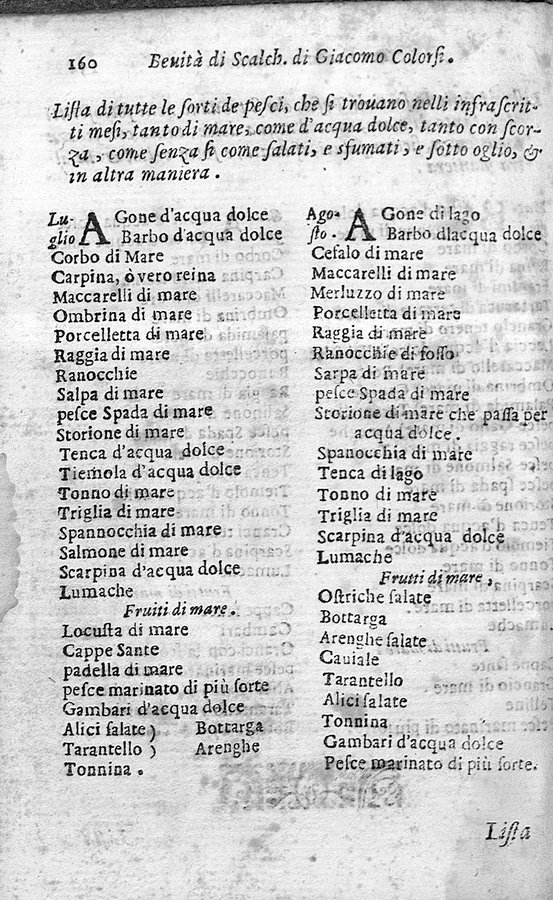 160 Beuità di Scalch. di Giacomo Colorsi.
Lista di tutte le sorti de pesci, che si trouano nelli infrascrit-
ti mesi, tanto di mare, come d'acqua dolce, tanto con scor-
za, come senza si come salati, e sfumati, e sotto oglio, &
in altra maniera.
Lu- AGone d'acqua dolce
glio Barbo d'acqua dolce
Corbo di Mare
Carpina, ò vero reina
Maccarelli di mare
Ombrina di mare
Porcelletta di mare
Raggia di mare
Ranocchie
Salpa di mare
pesce Spada di mare
Storione di mare
Tenca d'acqua dolce
Tiemola d'acqua dolce
Tonno di mare
Triglia di mare
Spannocchia di mare
Salmone di mare
Scarpina d'acqua dolce
Lumache
Fruiti di mare.
Locusta di mare
Cappe Sante
padella di mare
pesce marinato di più sorte
Gambari d'acqua dolce
Alici salate) Bottarga
Tarantello ) Arenghe
Tonnina.
Ago- AGone di lago
sto. Barbo dlacqua dolce
Cefalo di mare
Maccarelli di mare
Merluzzo di mare
Porcelletta di mare
Raggia di mare
Ranocchie di fosso
Sarpa di mare
pesce Spada di mare
Storione di mare che passa per
acqua dolce.
Spanocchia di mare
Tenca di lago
Tonno di mare
Triglia di mare
Scarpina d'acqua dolce
Lumache
Frutti di mare,
Ostriche salate
Bottarga
Arenghe salate
Cauiale
Tarantello
Alici salate
Tonnina
Gambari d'acqua dolce
Pesce marinato di più sorte.
Lista